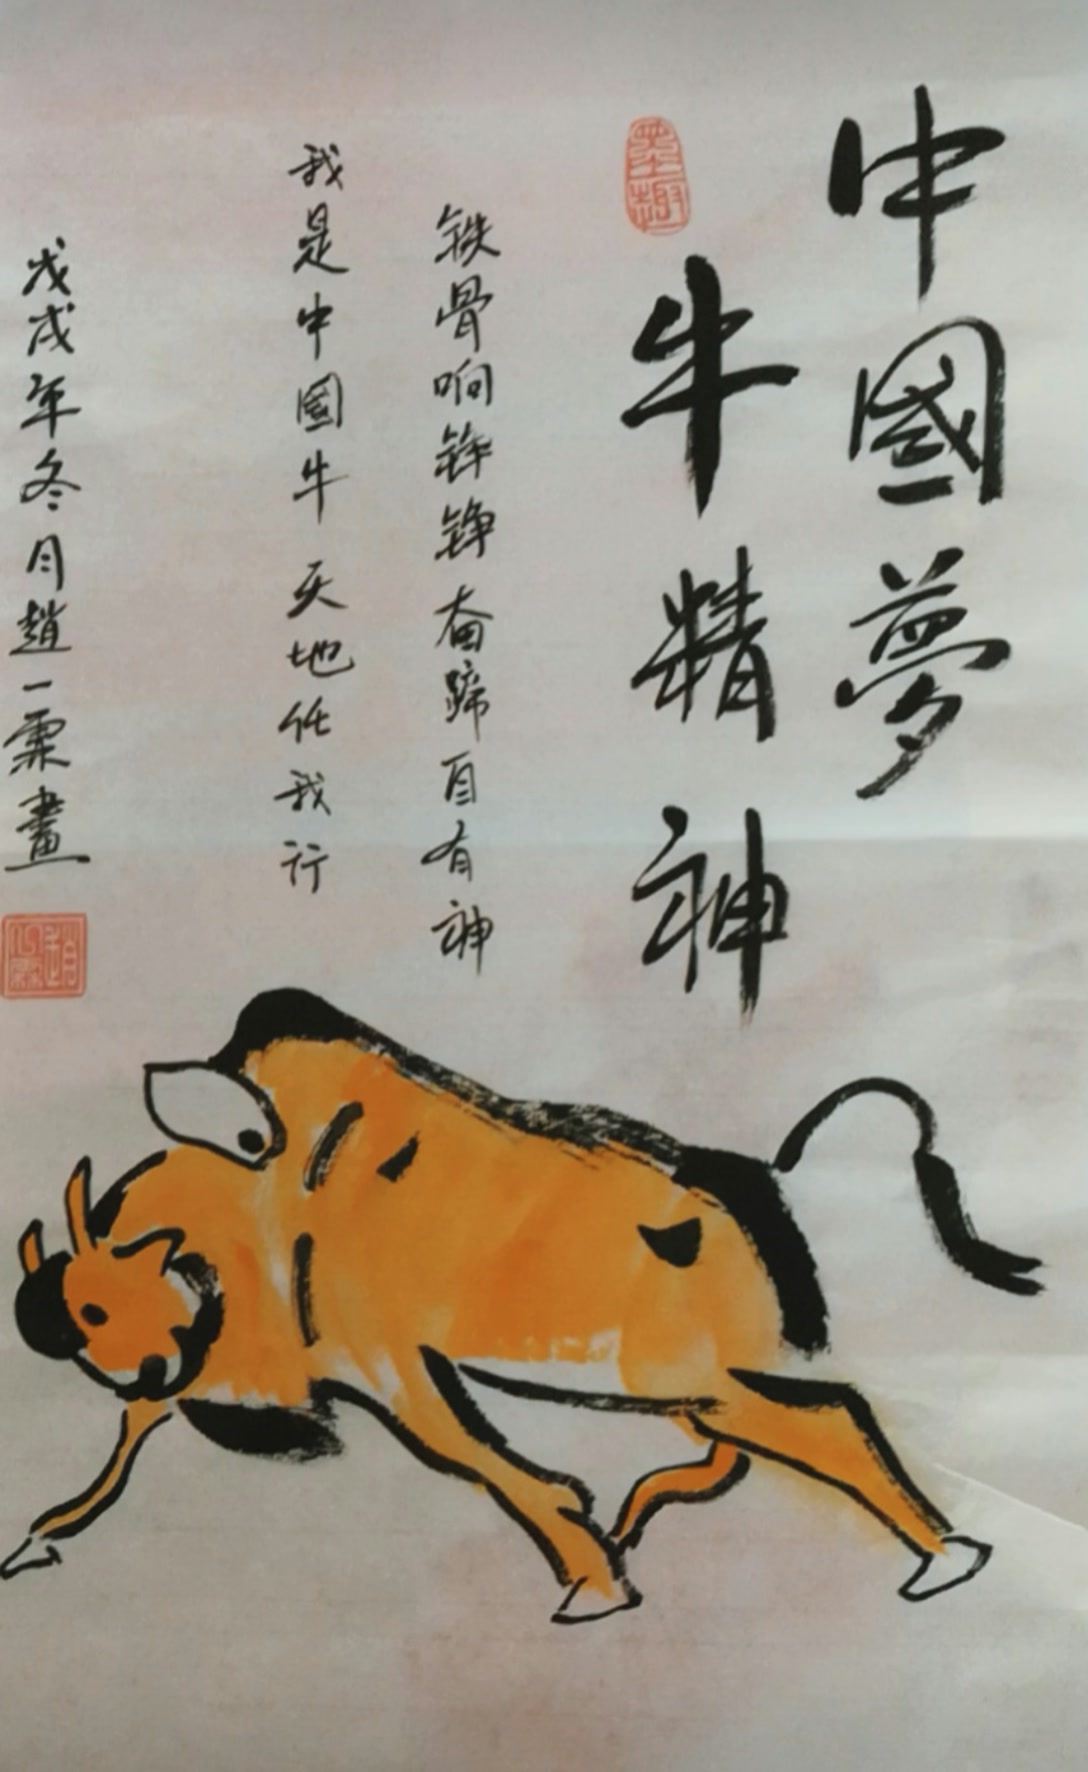 中國夢
牛精神
墨趣
铁骨响铮铮奋蹄自有神
我是中國牛天地任我行
戊戌年冬月趙一霖畫